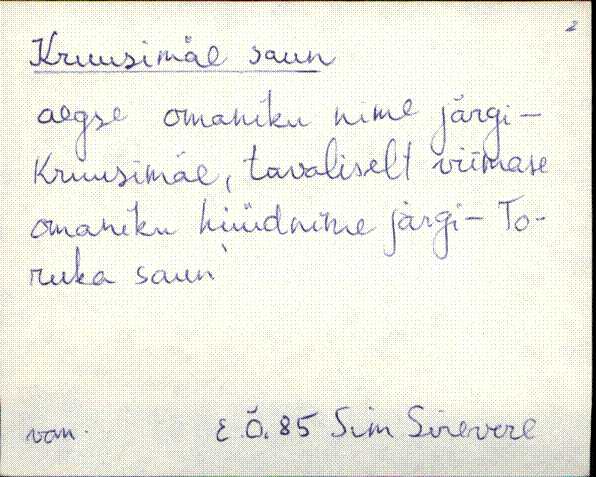 2
Kruusimäe saun
aegse omaniku nime järgi –
Kruusimäe, tavaliselt viimase
omaniku hüüdnime järgi – To-
ruka saun
van. E.Õ. 85 Sim Sirevere